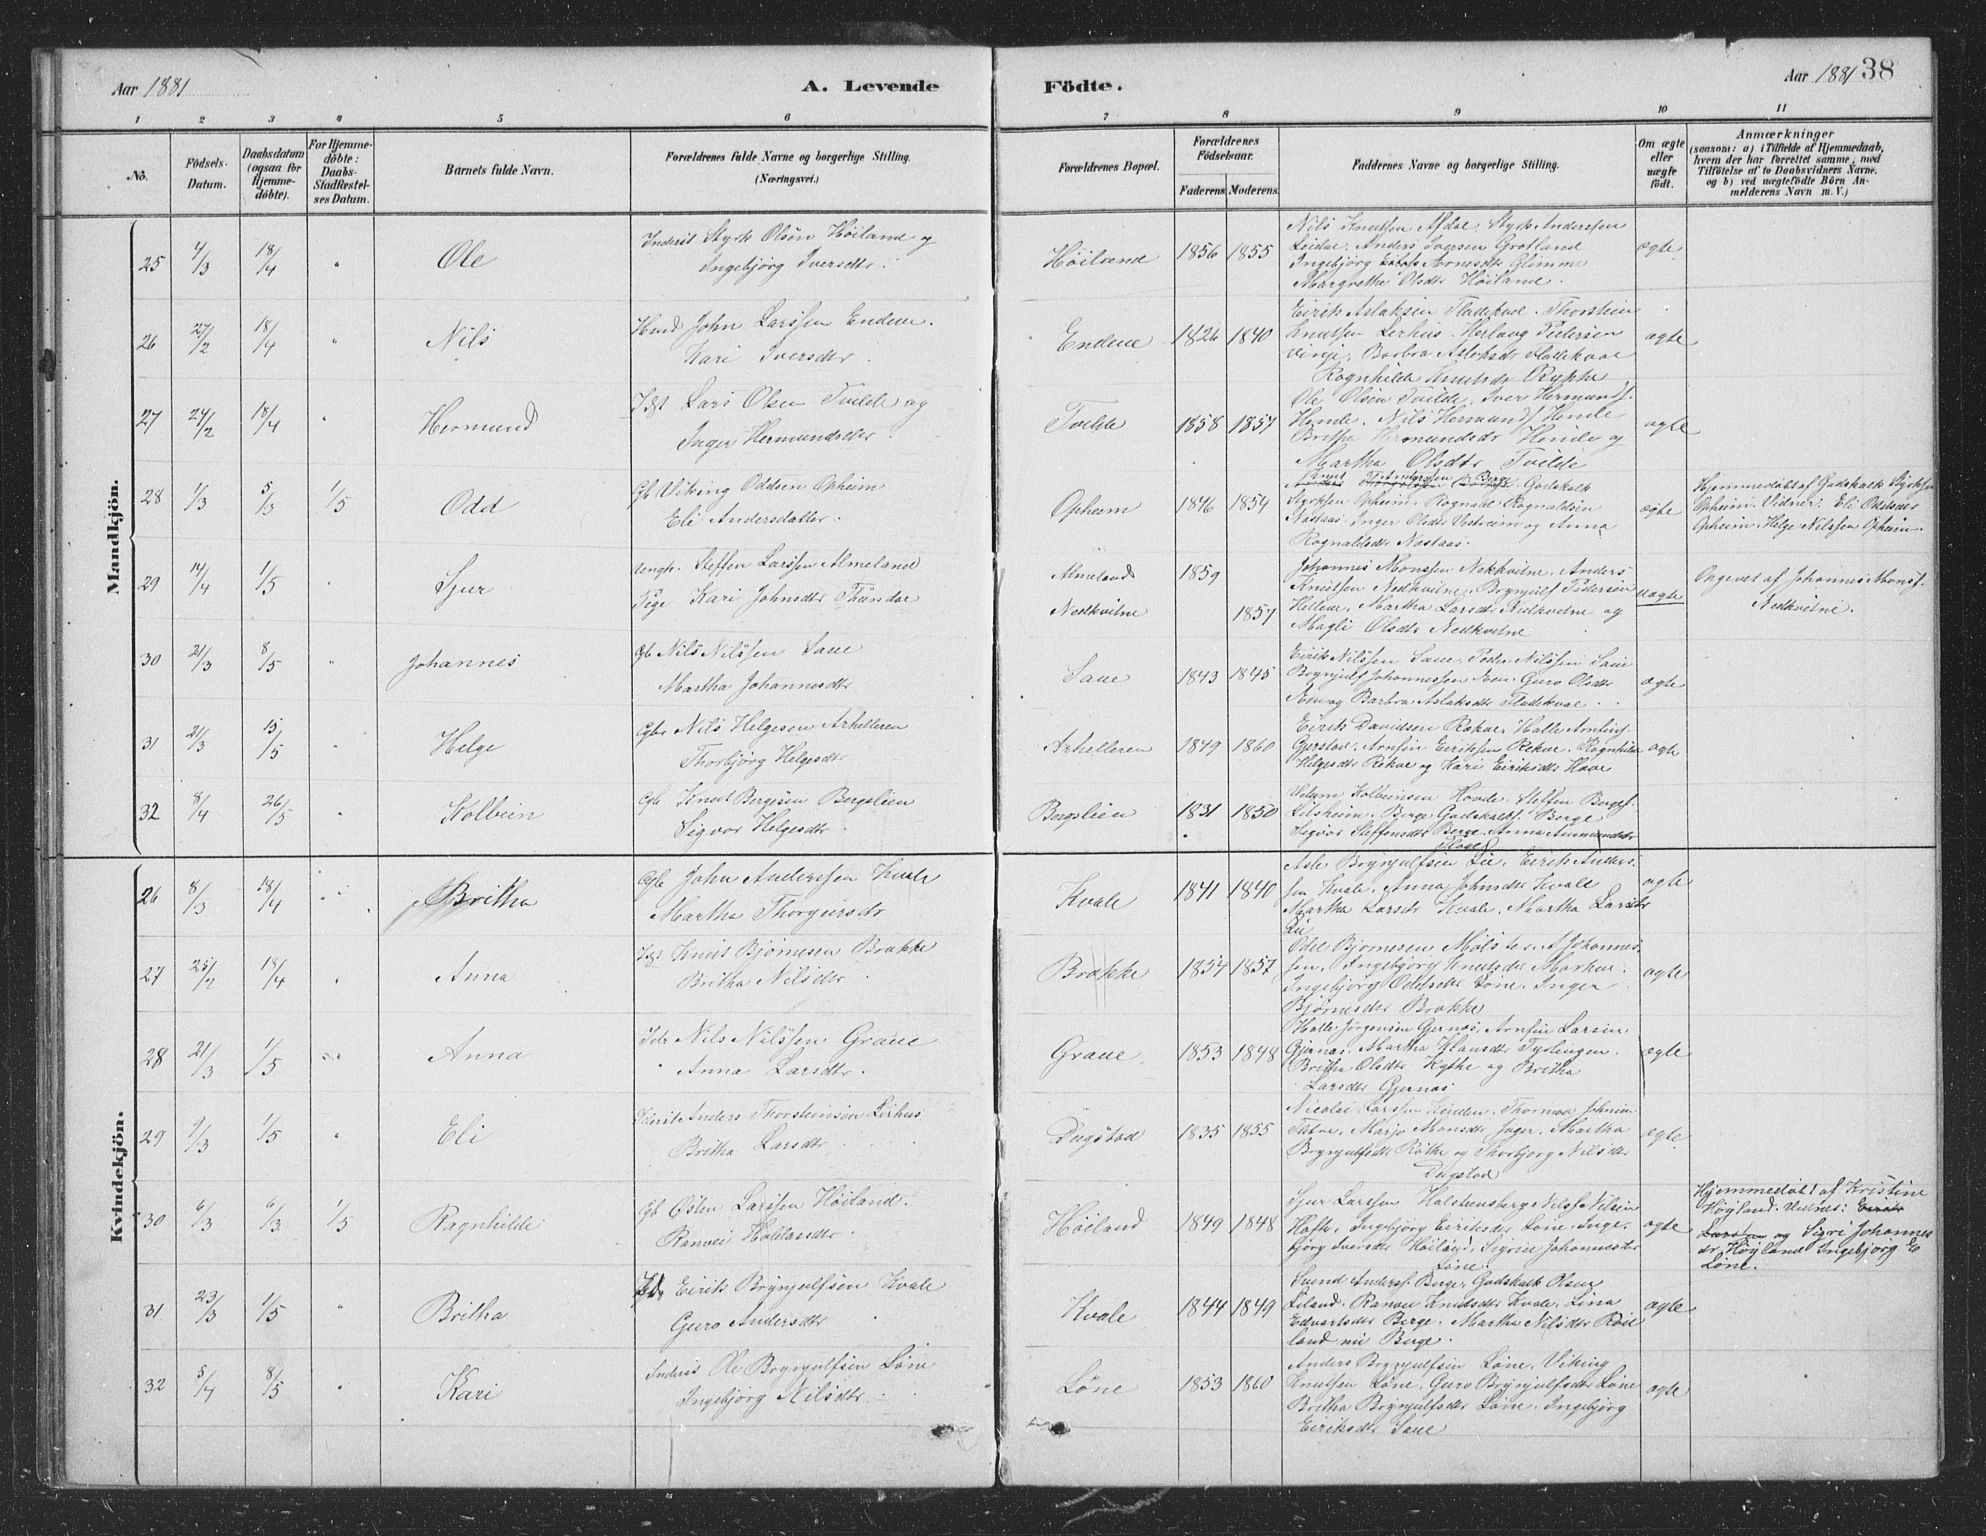 Aar 1881
A. Levende
Födte.
Aar 1881 38
1 2 3 4 5 6 7 8 9 10 11
No.
Födsels-
Datum.
Daabsdatum
(ogsaa for
Hjemme-
döbte).
For Hjemme-
döbte:
Daabs-
Stadfæstel-
ses Datum.
Barnets fulde Navn.
Forældrenes fulde Navne og borgerlige Stilling.
(Næringsvei.)
Forældrenes Bopæl.
Forældrenes
Födselsaar.
Faderens. Moderens.
Faddernes Navne og borgerlige Stilling.
Om ægte
eller
uægte
födt.
Anmærkninger
(saasom: a) i Tilfælde af Hjemmedaab,
hvem der har forrettet samme, med
Tilföielse af to Daabsvidners Navne,
og b) ved uægtefödte Börn An-
melderens Navn m. V.)
Mandkjön.
25 4/3 18/4 " Ole
Inderst Styrk Olsen Höiland og
Ingebjörg Iversdtr.
Höiland 1856 1855
Nils Knutsen Afdal, Styrk Anderssen
Leidal, Anders Iversen Grotland
Ingebjörg Arnesdtr Glimme
Margretha Olsdtr Höiland.
ægte
26 27/2 18/4 " Nils
John Larssen Endeve.
Kari Iversdtr.
Endeve 1826 1840
Eirik Aslaksen Fladekval. Thorstein
Knutsen Lirhus. Herlaug Pedersen
Vinje, Barbra Aslaksdr Flatekval
Ragnhilde Knutsdr Rypta
ægte
27 24/2 18/4 " Hermund
Lars Olsen Tvilde og
Inger Hermundsdtr.
Tvilde 1858 1857
Ole Olsen Tvilde, Iver Hermunds.
Hende. Nils Hermunds Hende
Britha Hermundsdr Hende og
Martha Olsdtr Tvilde
ægte
28 1/3 5/3 1/5 Odd
Gb Viking Oddsen Opheim
Eli Andersdatter.
Opheim 1846 1854
Godskalk
Styrksen Opheim. Rognald Rognaldsen
Nastaas. Inger Olsdtr Vestreim og Anna
Rognaldsdtr Nastaas.
ægte
Hjemmedöbt af Godskalk Styrksen
Opheim. Vidner: Eli Oddsdtr
Opheim. Helge Nilssen Opheim.
29 14/4 1/5 " Sjur
Ungk. Steffen Larssen Almeland
Pige Kari Johnsdtr Thundal
Almeland 1859
Nedkvitne 1857
Johannes Monssen Nekkvitne. Anders
Knutsen Nedkvitne, Brynjulf Pedersen
Hellene, Martha Larsdtr Nedkvitne og
Magli Olsdtr Nedkvitne
uægte
Opgivet af Johannes Monss.
Nedkvitne.
30 21/3 8/5 " Johannes
Gb Nils Nilssen Saue
Martha Johannesdtr
Saue 1843 1845
Eirik Nilssen Saue, Peder Nilssen Saue
Brynjulf Johannessen Æen. Guro Olsdtr
Æen og Barbra Aslaksdtr Fladekval.
ægte
31 21/3 15/5 " Helge
Gbr Nils Helgesen Arhelleren
Thorbjörg Helgesdtr
Arhelleren 1849 1860
Eirik Davidsen Rekve. Halle Arnfins.
Gjerstad. Arnfin Eiriksen Rekve. Ragnhilde
Helgesdtr Rekve og Kari Eiriksdtr Have
ægte
32 8/4 26/5 " Kolbein
Gb Knut Bergesen Bergslien
Sigvor Helgesdtr.
Bergslien 1831 1850
Kolbeinsen Hovde. Steffen Berges.
Litsheim. Berge Godskalks Berge
Sigvor Steffensdtr Berge. Anna Amundsdtr
Kvindekjön.
26 8/3 18/4 " Britha
Gb John Anderssen Kvale
Martha Thorgiersdr
Kvale 1841 1840
Asle Brynjulfsen Lie. Eirik Anders-
sen Kvale. Anna Johnsdtr Kvale
Martha Larsdtr Kvale. Martha Larsdtr
Lie
ægte
27 25/2 18/4 " Anna
Idst Knut Bjørnesen Brakke
Britha Nilsdtr
Brakke 1854 1857
Odd Bjørnesen Mölster. A Johannes-
sen, Ingebjörg Knutsdtr Markve.
Ingebjörg Oddsdtr Löne. Inger
Bjørnesdtr Brakke
ægte
28 21/3 1/5 " Anna
Idr Nils Nilssen Graue
Anna Larsdtr.
Graue 1853 1848
Halle Jörgensen Gjernæs, Arnfin Larsen
Gjernæs. Martha Klausdtr Tyslingen.
Britha Olsdtr Kythe og Britha
Larsdtr Gjernæs
ægte
29 9/3 1/5 " Eli
Iderst Anders Thorsteinsen Lirhus
Britha Larsdtr
Dugstad 1835 1855
Nicolai Larssen Kinden. Thormod Johnsen
Marjo Monsdtr Jager. Martha
Brynjulfsdtr Röthe og Thorbjörg Nilsdtr
Dugstad
ægte
30 6/3 6/3 1/5 Ragnhilde
Gb Östen Larssen Höiland.
Ranvei
Höiland 1849 1848
Sjur Larssen Halstensberg Nils Nilsen
Ingebjörg Eiriksdtr Löne. Inge-
björg Iversdtr Höiland. Sigrid Johannesdtr
Löne.
ægte
Hjemmedöbt af Kristine
Höyland. Vidner:
Larssen og Sigri Johannes
dr Höyland Ingebjörg E
Löne.
31 23/3 1/5 " Britha
Eirik Brynjulfsen Kvale
Guro Andersdtr
Kvale 1844 1849
Svend Anderss. Berge. Godskalk Olsen
Leland. Ranvei Knutsdtr Kvale. Lina
Edvartsdtr Berge. Martha Nilsdtr Röie
land nu Berge.
ægte
32 5/4 8/5 " Kari
Inderst Ole Brynjulfsen Löne
Ingebjörg Nilsdtr
Löne 1853 1860
Anders Brynjulfsen Löne. Viking
Knutsen Löne. Guro Brynjulfsdtr Löne
Britha Brynjulfsdtr Löne. Ingebjörg
Eiriksdtr Saue
ægte